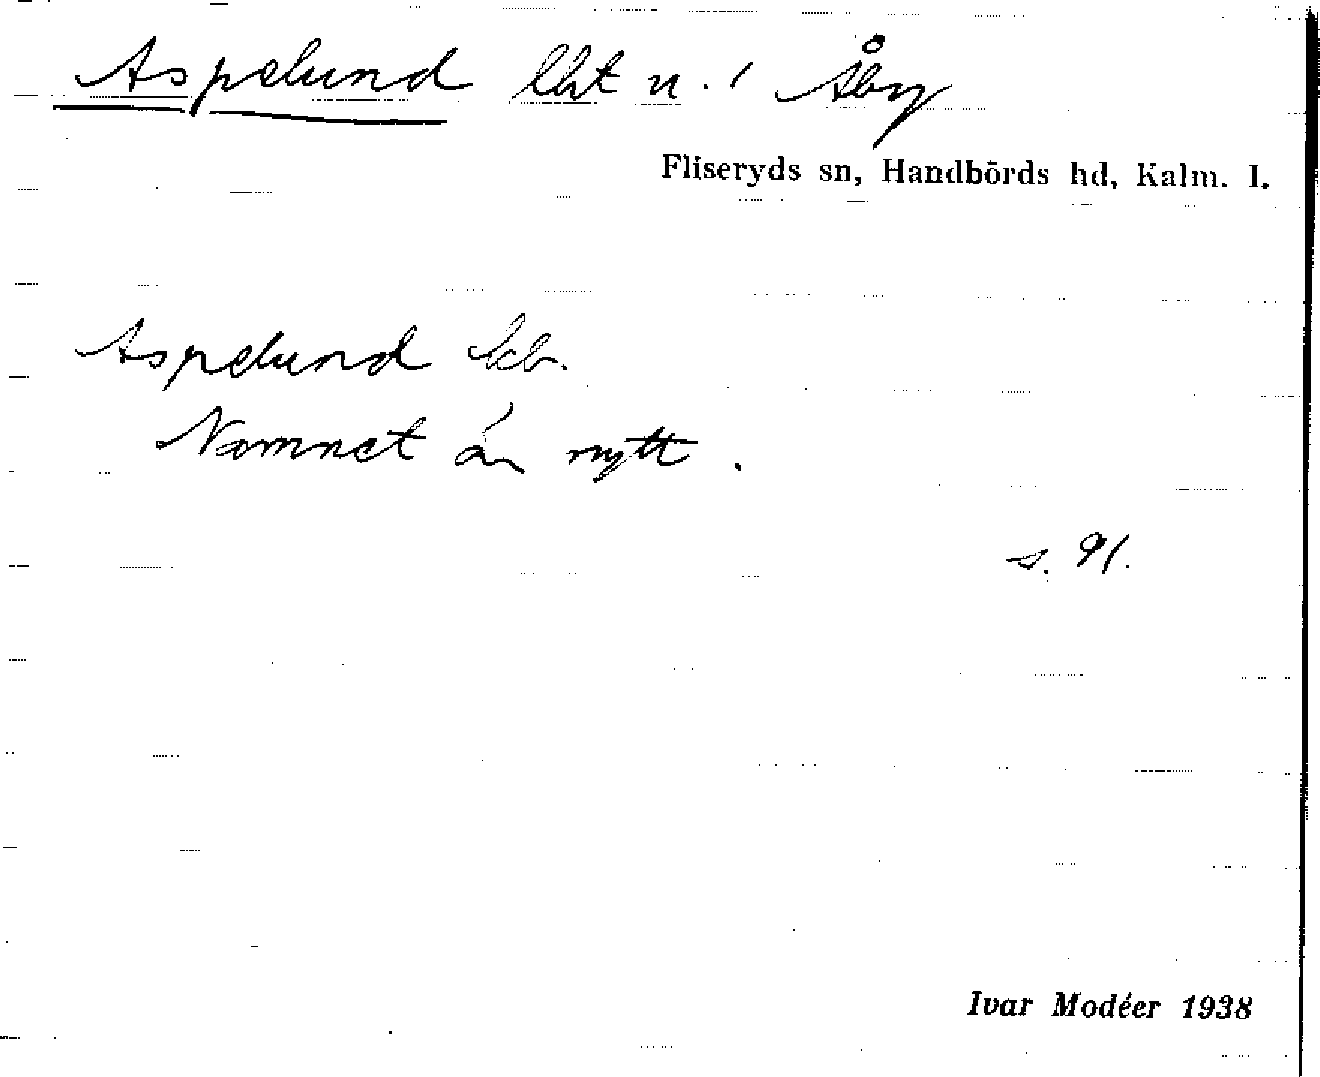 Aspelund lht u. / Åby
Fliseryds sn, Handbörds hd, Kalm. l.
Aspelund
Namnet är nytt.
s. 91.
Ivar Modéer 1938